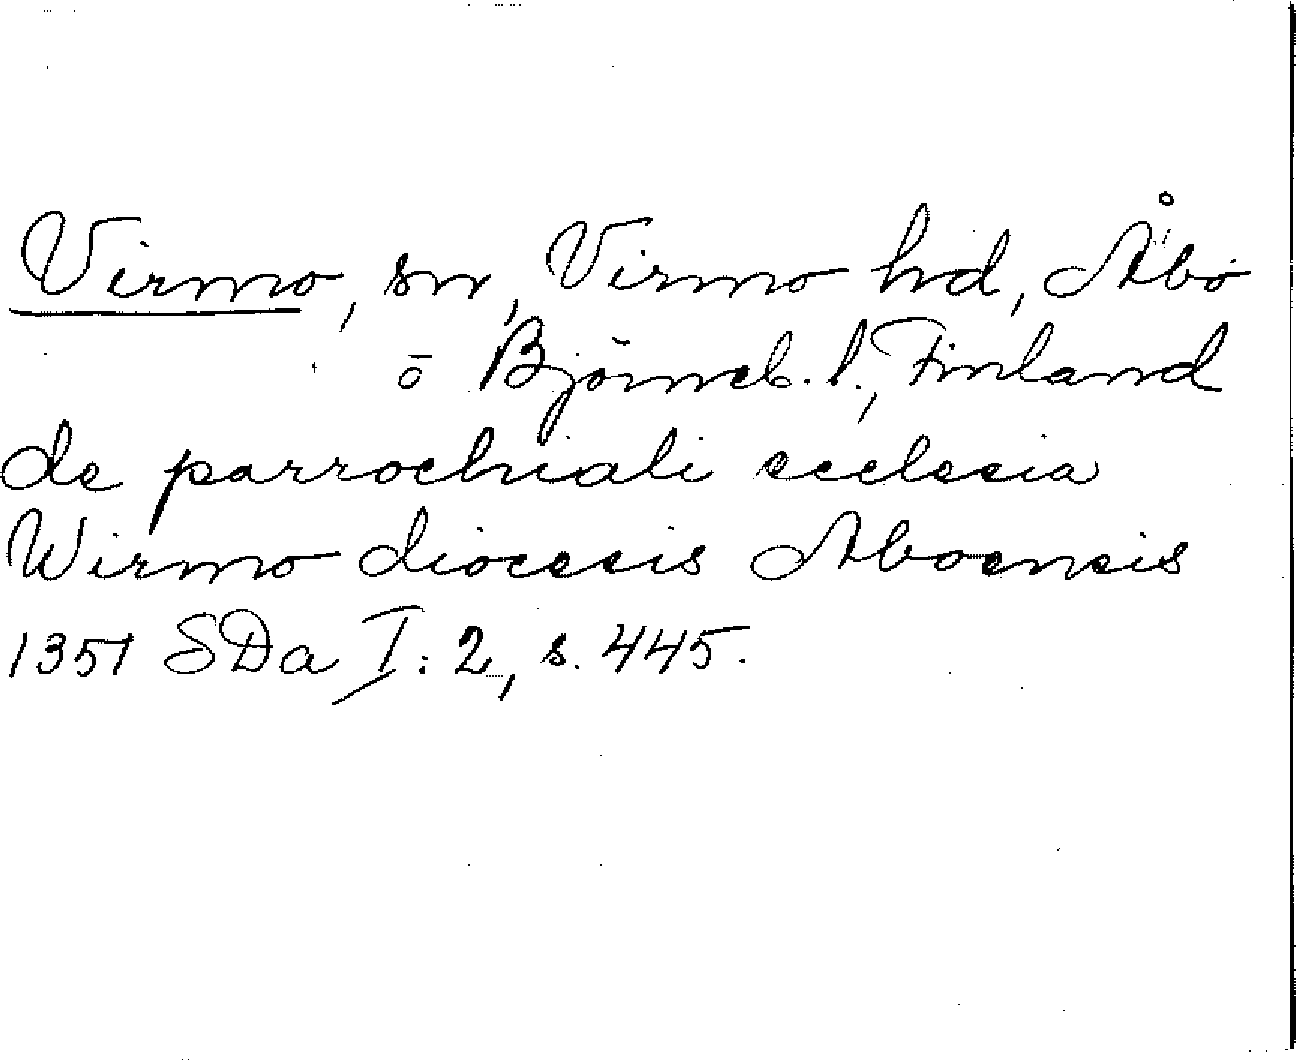 Virmo, sn, Virmo hd, Åbo
ō Björneb. l., Finland
de parrochiali ecclesia
Wirmo diocesis Aboensis
1351 SDa I: 2, s. 445.